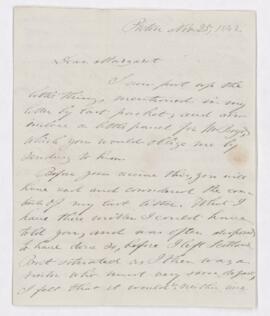 Nov. 25, 1842.
Dear Margaret
I now put up the
little things mentioned in my
letter by last packet, and also
enclose a little parcel for Mr
which you would oblige me by
sending to him.
Before you receive this, you will
have read and considered the con
tents of my last letter. What I
have there written I could have
told you, and was often disposed
to have done so, before I left Scotland
But situated as I then was, a
who must very soon depart,
I felt that it would